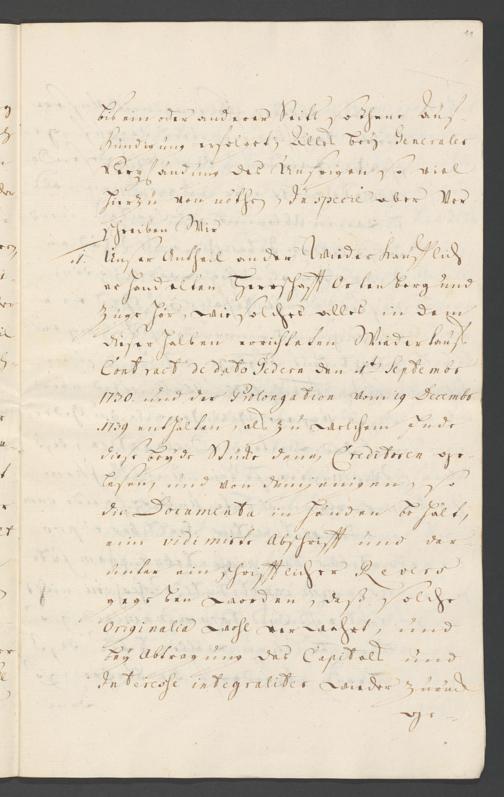 11
bis ein oder anderer Seits solchene Auf-
kündigung erfolget, Alles bey Generaler
Verpfändung des Unsrigen so viel
hierzu von nöthen, In specie aber Ver
schreiben Wir
1. Unser Antheil an der Wiederkaufflich
erhandelten Herrschafft Ortenberg und
Zugehör, wie solches alles in dem
dieserhalben errichteten Wiederkauf-
Contract de dato Gedern den 1t Septembr
1730 und der Prolongation vom 19 Decembr
1739 enthalten, als zu welchem Ende
diese beyde Stücke denen Creditoren ge-
lesen, und von demjenigen, so
die Documenta in Handen behält,
eine vidimirte Abschrifft und dar
unter ein schrifftlicher Revers
gegeben worden, daß solche
Originalia wohl verwahrt, und
bey Abtragung des Capitals und
Interesse integraliter wieder zurück
ge-